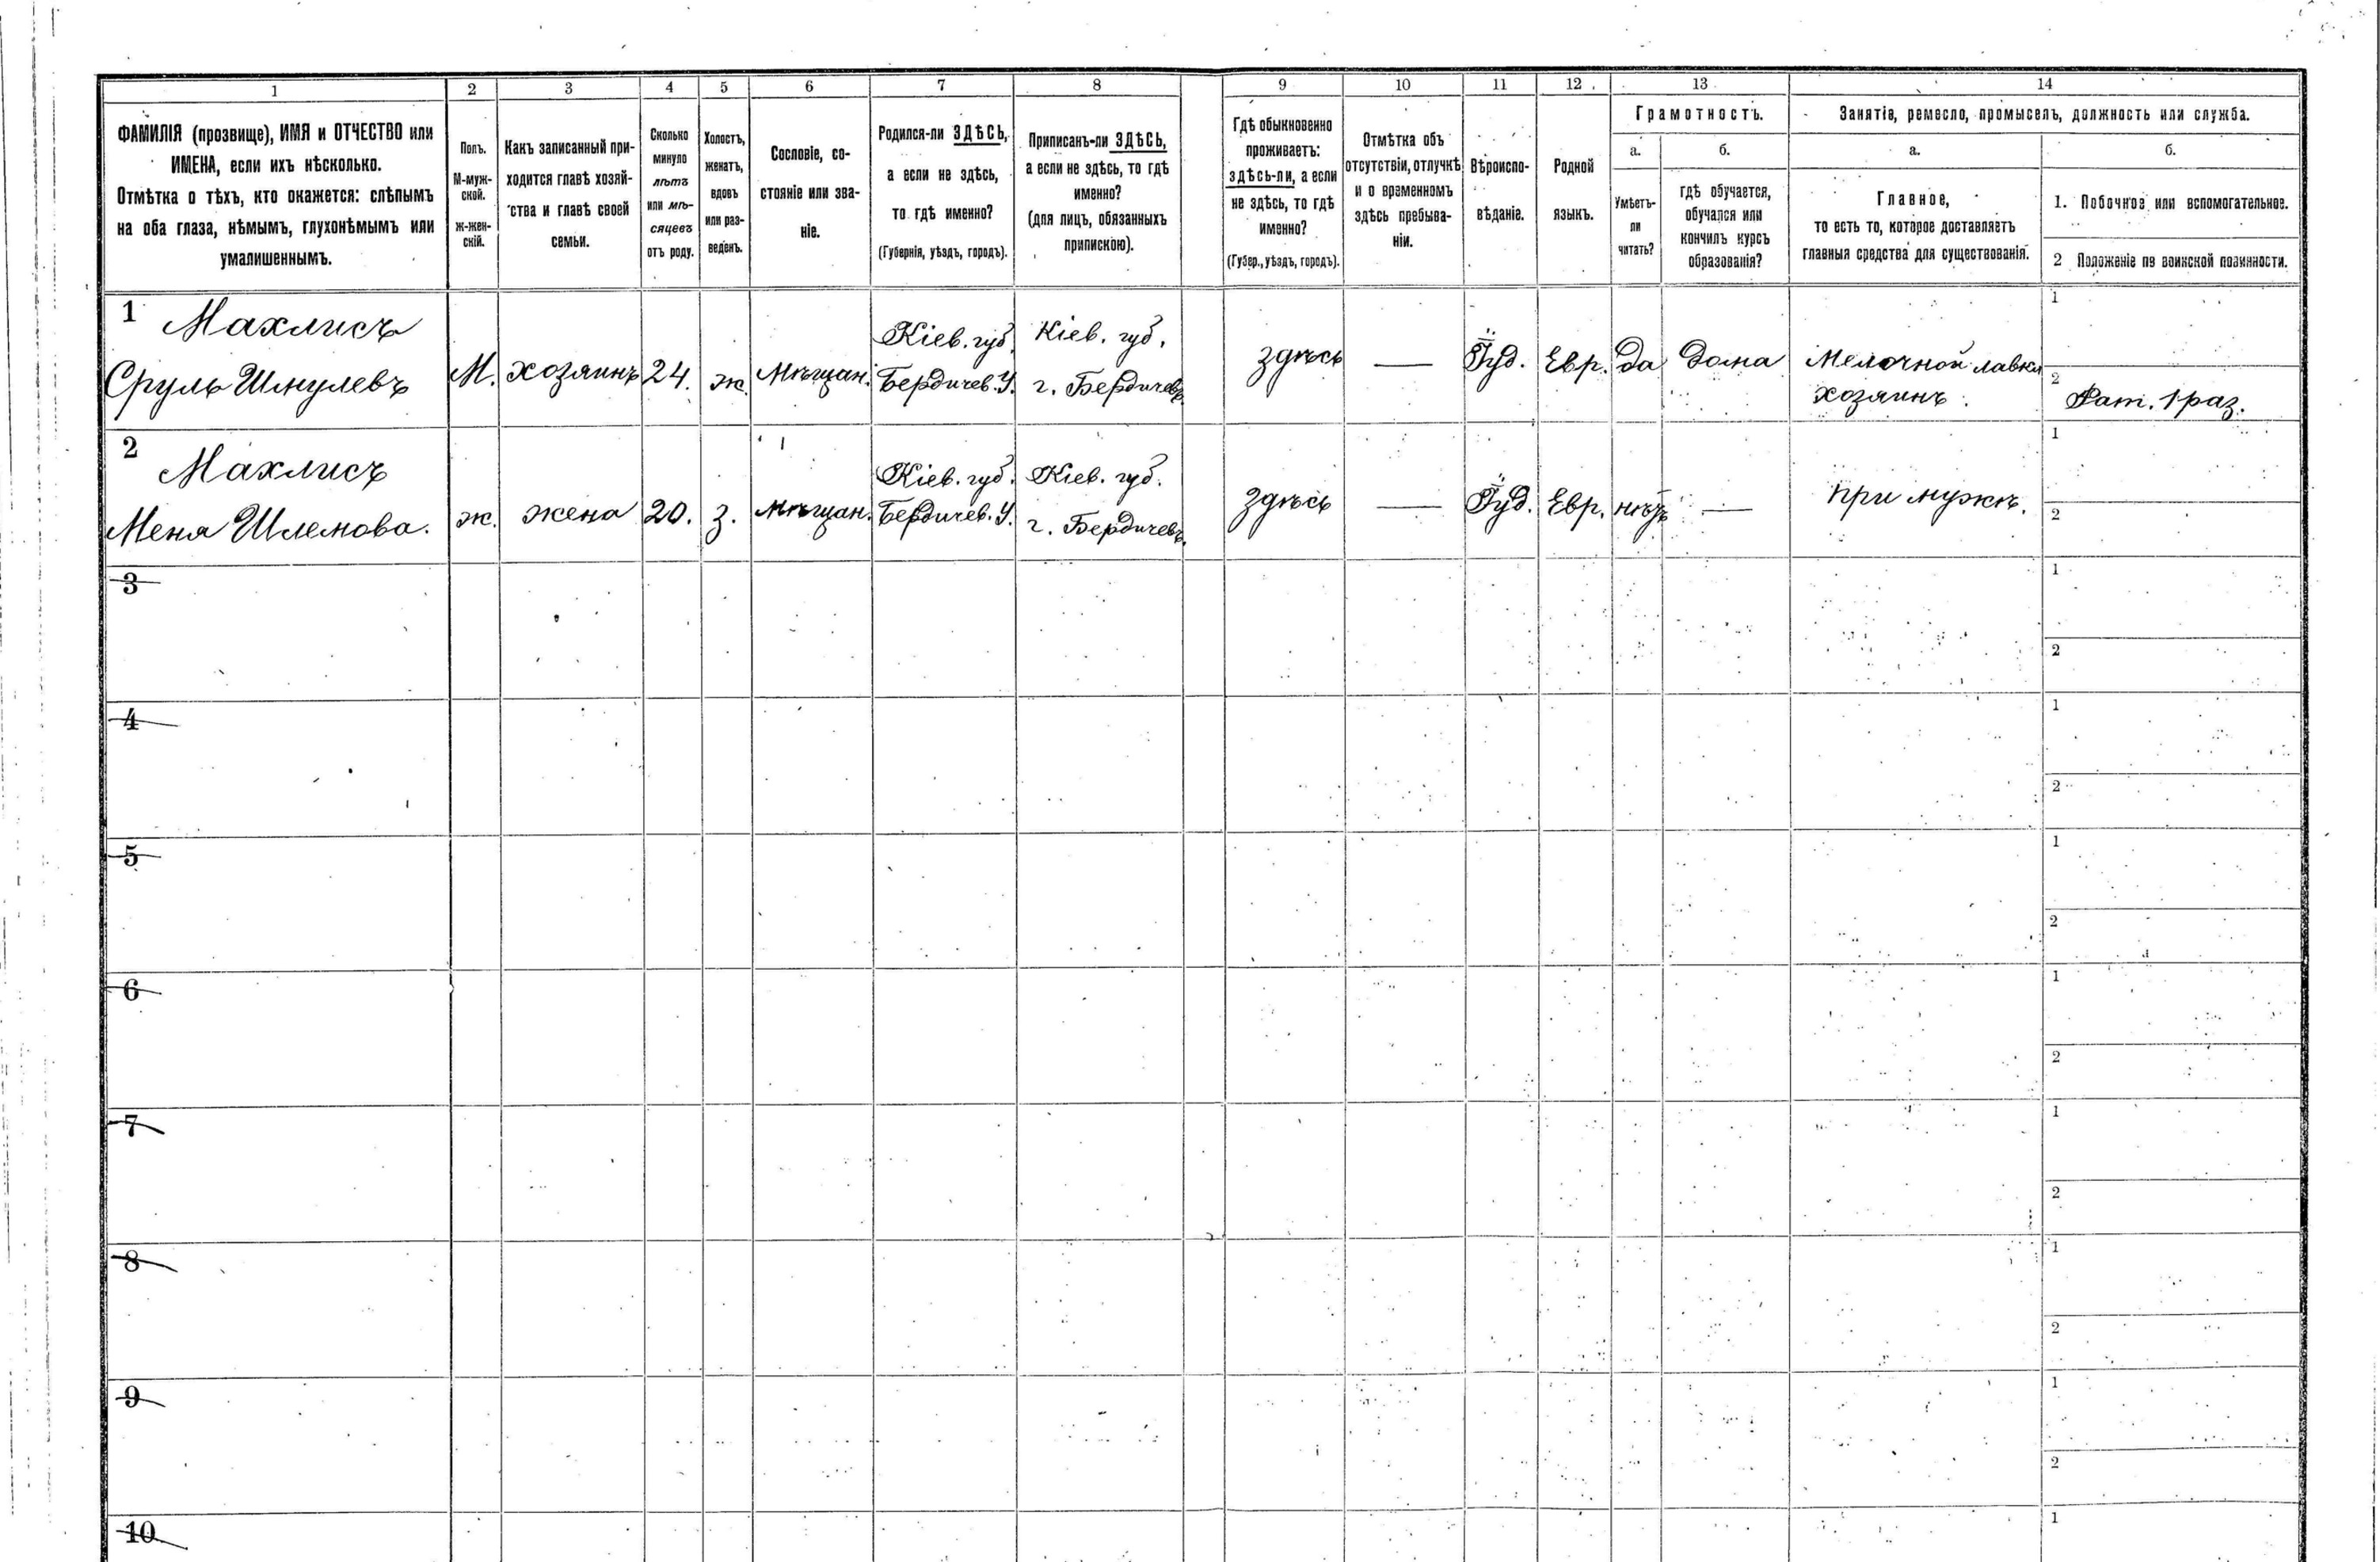 1 2 3 4 5 6 7 8 9 10 11 12 13 14
ФАМИЛІЯ (прозвище), ИМЯ и ОТЧЕСТВО или
ИМЕНА, если ихъ нѣсколько.
Отмѣтка о тѣхъ, кто окажется: слѣпымъ
на оба глаза, нѣмымъ, глухонѣмымъ или
умалишеннымъ.
Полъ.
М-муж-
ской.
ж-жен-
скій.
Какъ записанный при-
ходится главѣ хозяй-
ства и главѣ своей
семьи.
Сколько
минуло
лѣтъ
или мѣ-
сяцевъ
отъ роду.
Холостъ,
женатъ,
вдовъ
или раз-
веденъ.
Сословіе, со-
стояніе или зва-
ніе.
Родился-ли ЗДѢСЬ,
а если не здѣсь,
то гдѣ именно?
(Губернія, уѣздъ, городъ).
Приписанъ-ли ЗДѢСЬ,
а если не здѣсь, то гдѣ
именно?
(для лицъ, обязанныхъ
припискою).
Гдѣ обыкновенно
проживаетъ:
здѣсь-ли, а если
не здѣсь, то гдѣ
именно?
(Губер., уѣздъ, городъ).
Отмѣтка объ
отсутствіи, отлучкѣ
и о временномъ
здѣсь пребыва-
ніи.
Вѣроиспо-
вѣданіе.
Родной
языкъ.
Грамотность.
а.
Умѣетъ-
ли
читать?
б.
гдѣ обучается,
обучался или
кончилъ курсъ
образованія?
Занятіе, ремесло, промыселъ, должность или служба.
а.
Главное,
то есть то, которое доставляетъ
главныя средства для существованія.
б.
1. Побочное или вспомогательное.
2 Положеніе по воинской повинности.
1 Махлисъ
Сруль Шмулевъ
М.
хозяинъ
24.
ж.
Мѣщан.
Кіев. губ.
Бердичев. У.
Кіев. губ.
г. Бердичевъ.
здѣсь
—
Іуд.
Евр.
Да
Дома
Мелочной лавки
хозяинъ.
1
2
Рат. 1 раз.
2 Махлисъ
Меня Шлемова.
ж.
жена
20.
з.
Мѣщан.
Кіев. губ.
Бердичев. У.
Кіев. губ.
г. Бердичевъ.
здѣсь
—
Іуд.
Евр.
нѣтъ
—
при мужѣ.
1
2
3
1
2
4
1
2
5
1
2
6
1
2
7
1
2
8
1
2
9
1
2
10
1